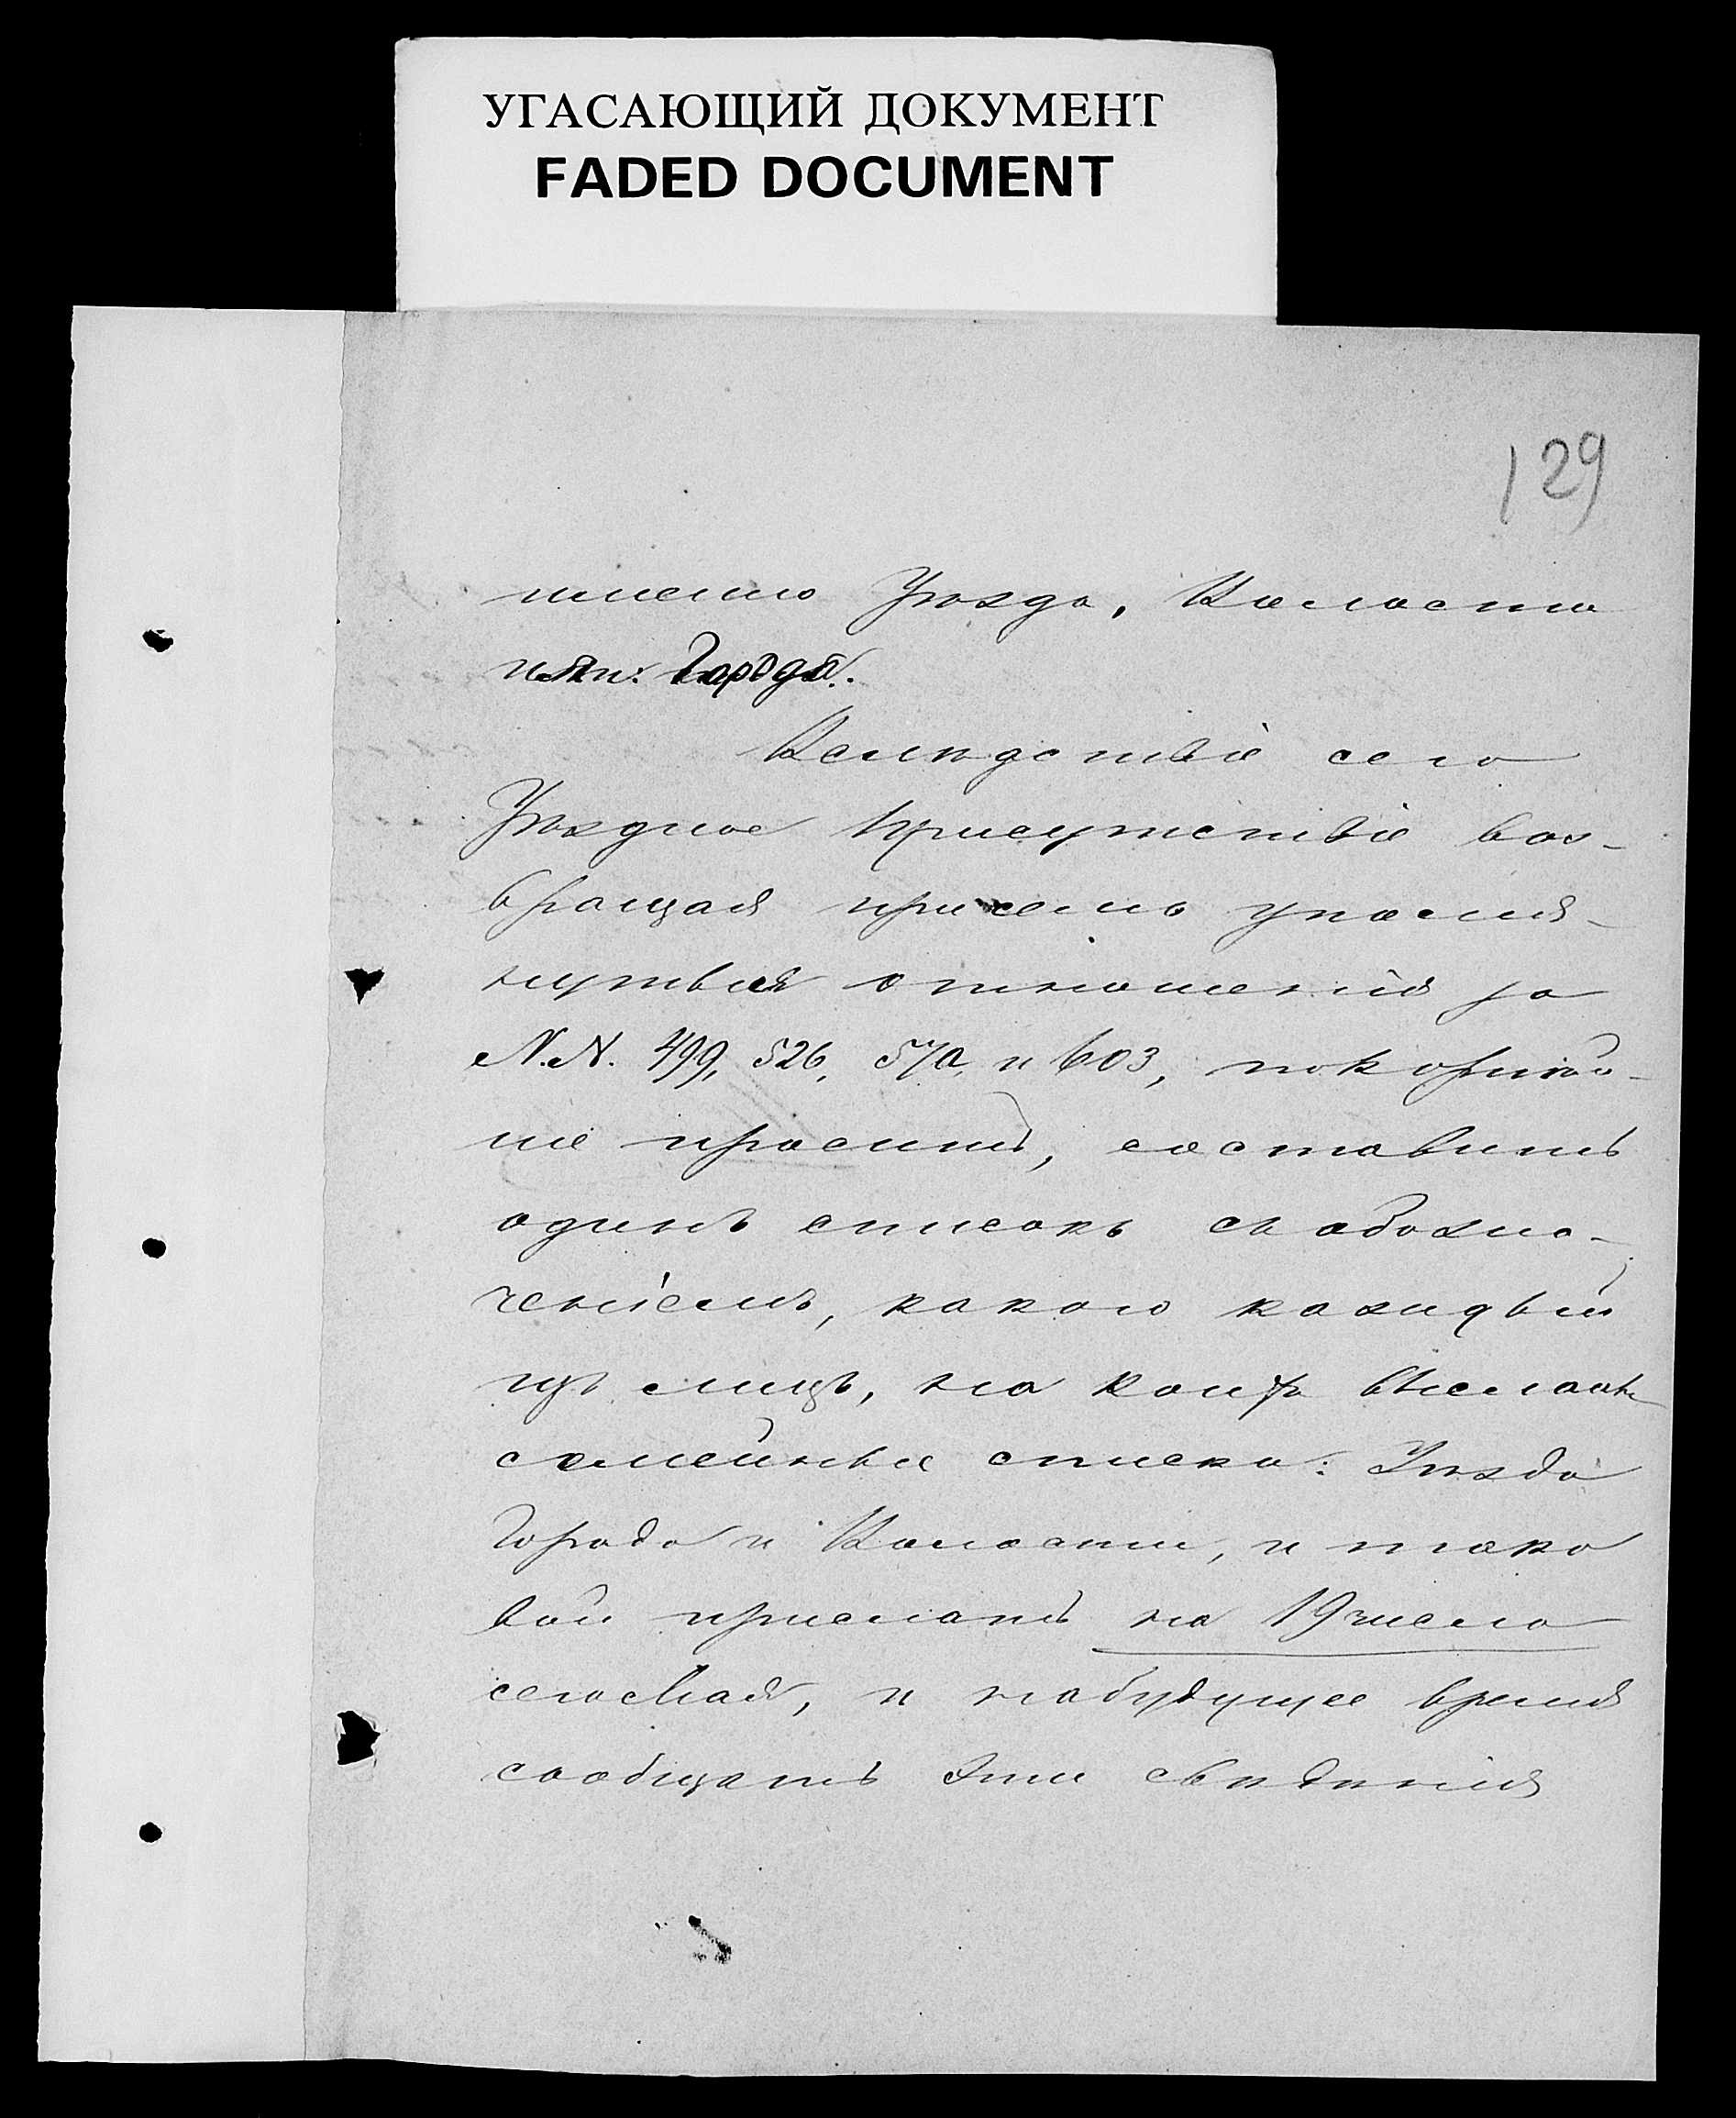 УГАСАЮЩИЙ ДОКУМЕНТ
FADED DOCUMENT
129
Уѣзда, Волости
или Города.
Вслѣдствіе сего
Уѣздное Присутствіе воз-
вращая при семъ упомя-
нутыя отношенія за
N.N. 499, 526, 570, и 603, покорнѣй-
ше проситъ, составить
одинъ списокъ съ обозна-
ченіемъ, какого каждый
изъ лицъ, на коихъ высланы
семейные списки: Уѣзда
Города и Волости, и тако
вой прислать на 19 число
сего Мая, и на будущее время
сообщать эти свѣдѣнія